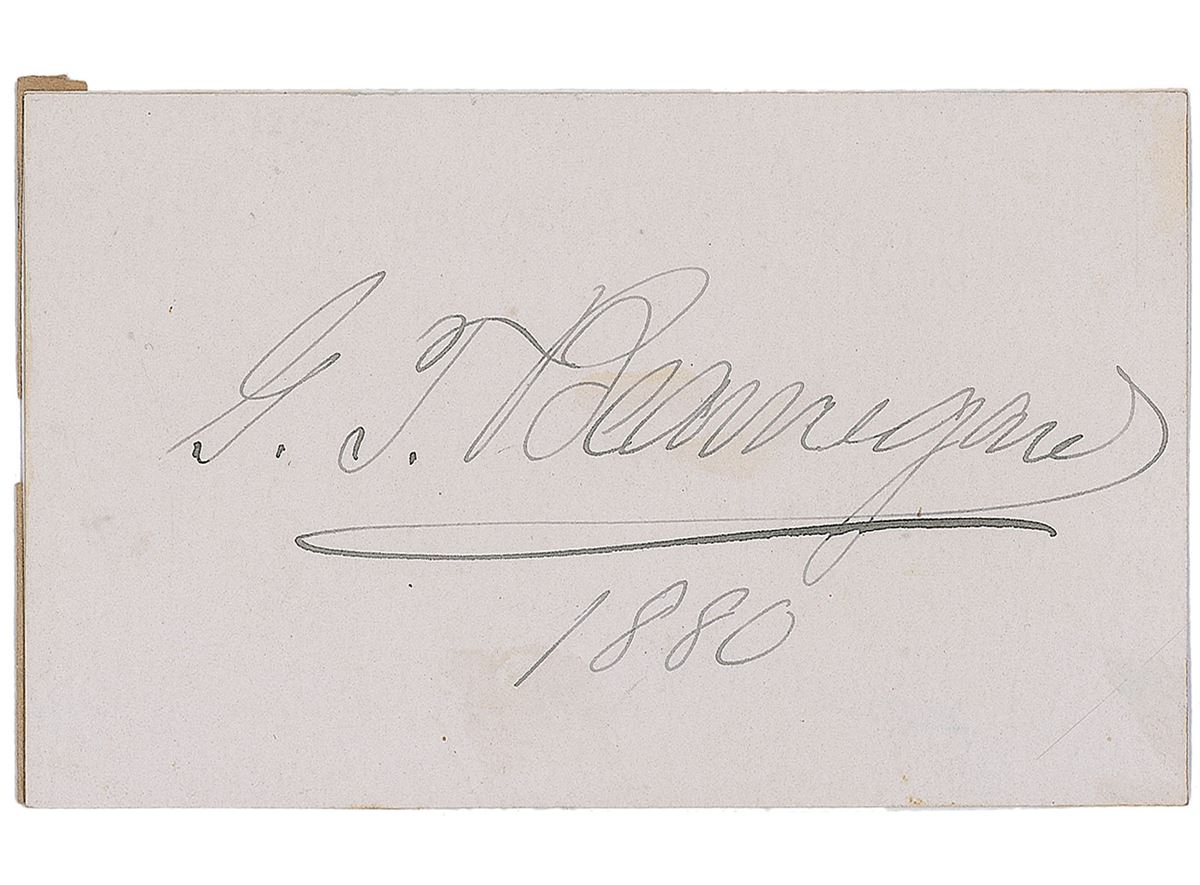 G. T. Beauregard
1880